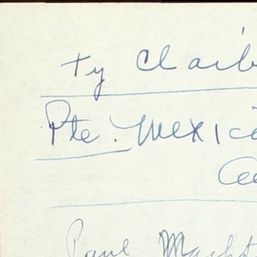 Ty Claib
Pte. Mexic
Ce
Paul Mach